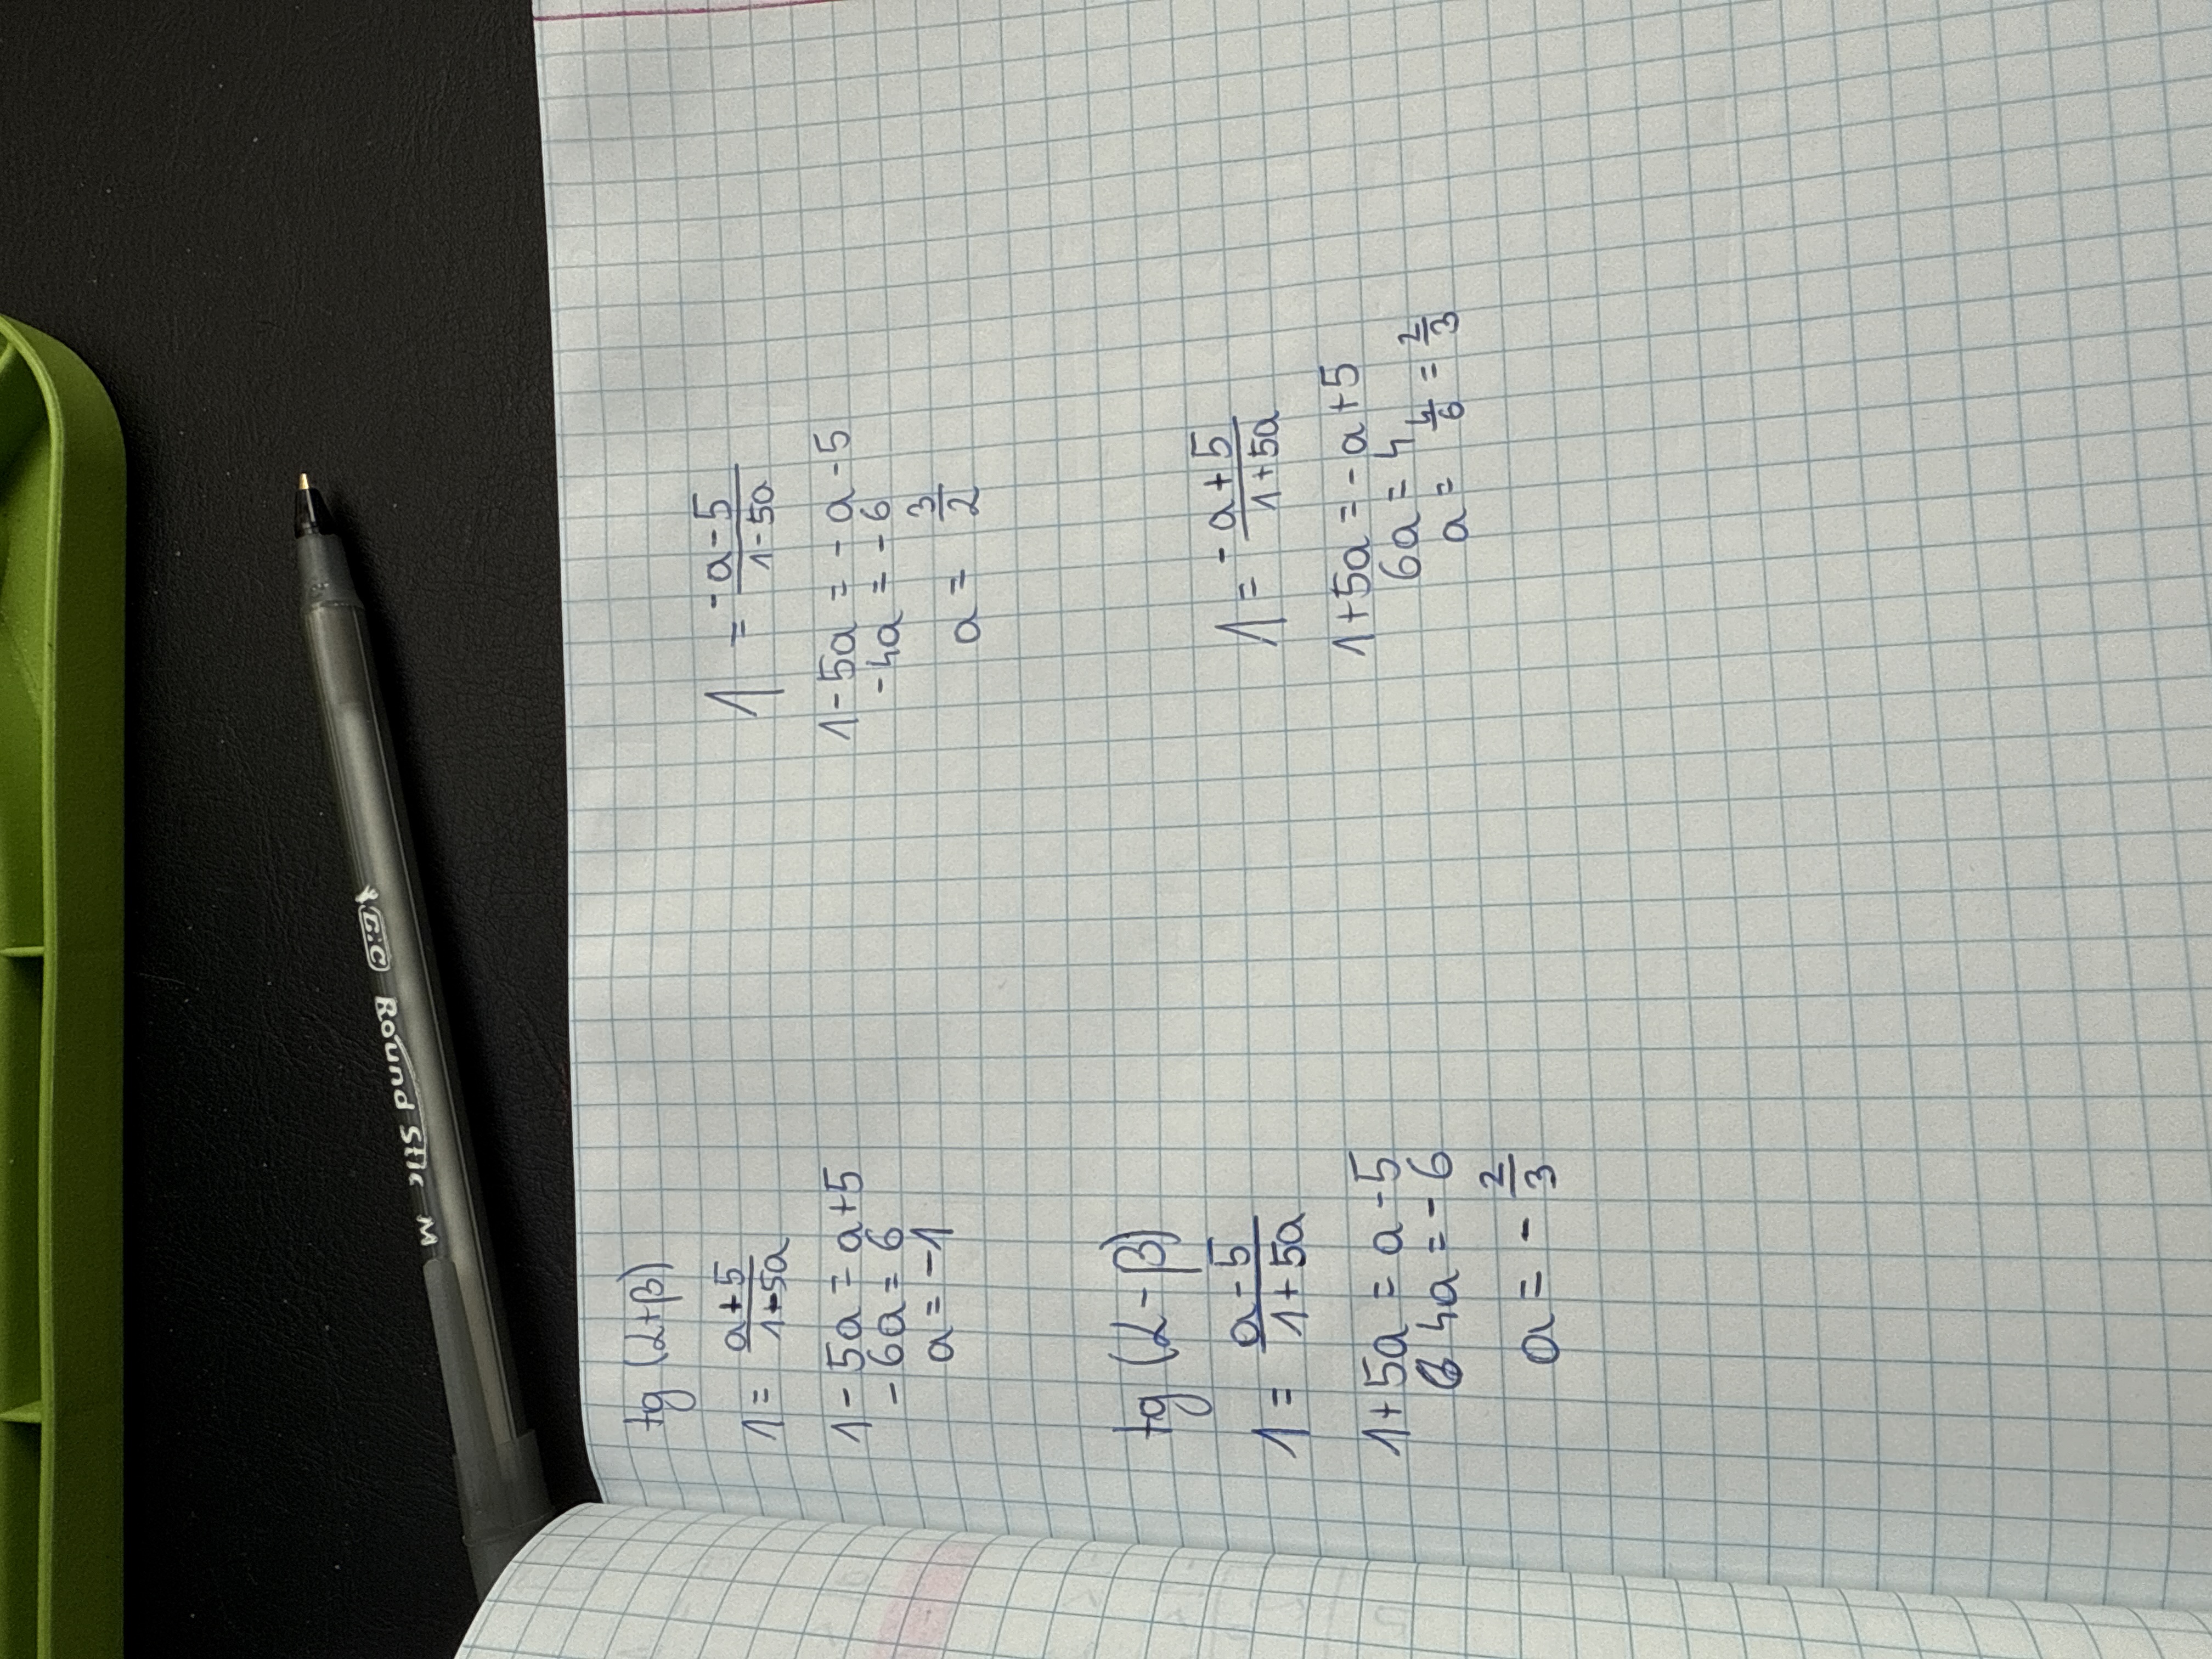 tg (α+β)
1 = a+5 / 1+5a
1 - 5a = a+5
- 6a = 6
a = -1
1 = -a-5 / 1-5a
1 - 5a = -a-5
-4a = -6
a = 3/2
tg (α-β)
1 = a-5 / 1+5a
1+5a = a-5
4a = -6
a = - 2/3
1 = -a+5 / 1+5a
1+5a = -a+5
6a = 4
a = 4/6 = 2/3
BIC Round Stic M